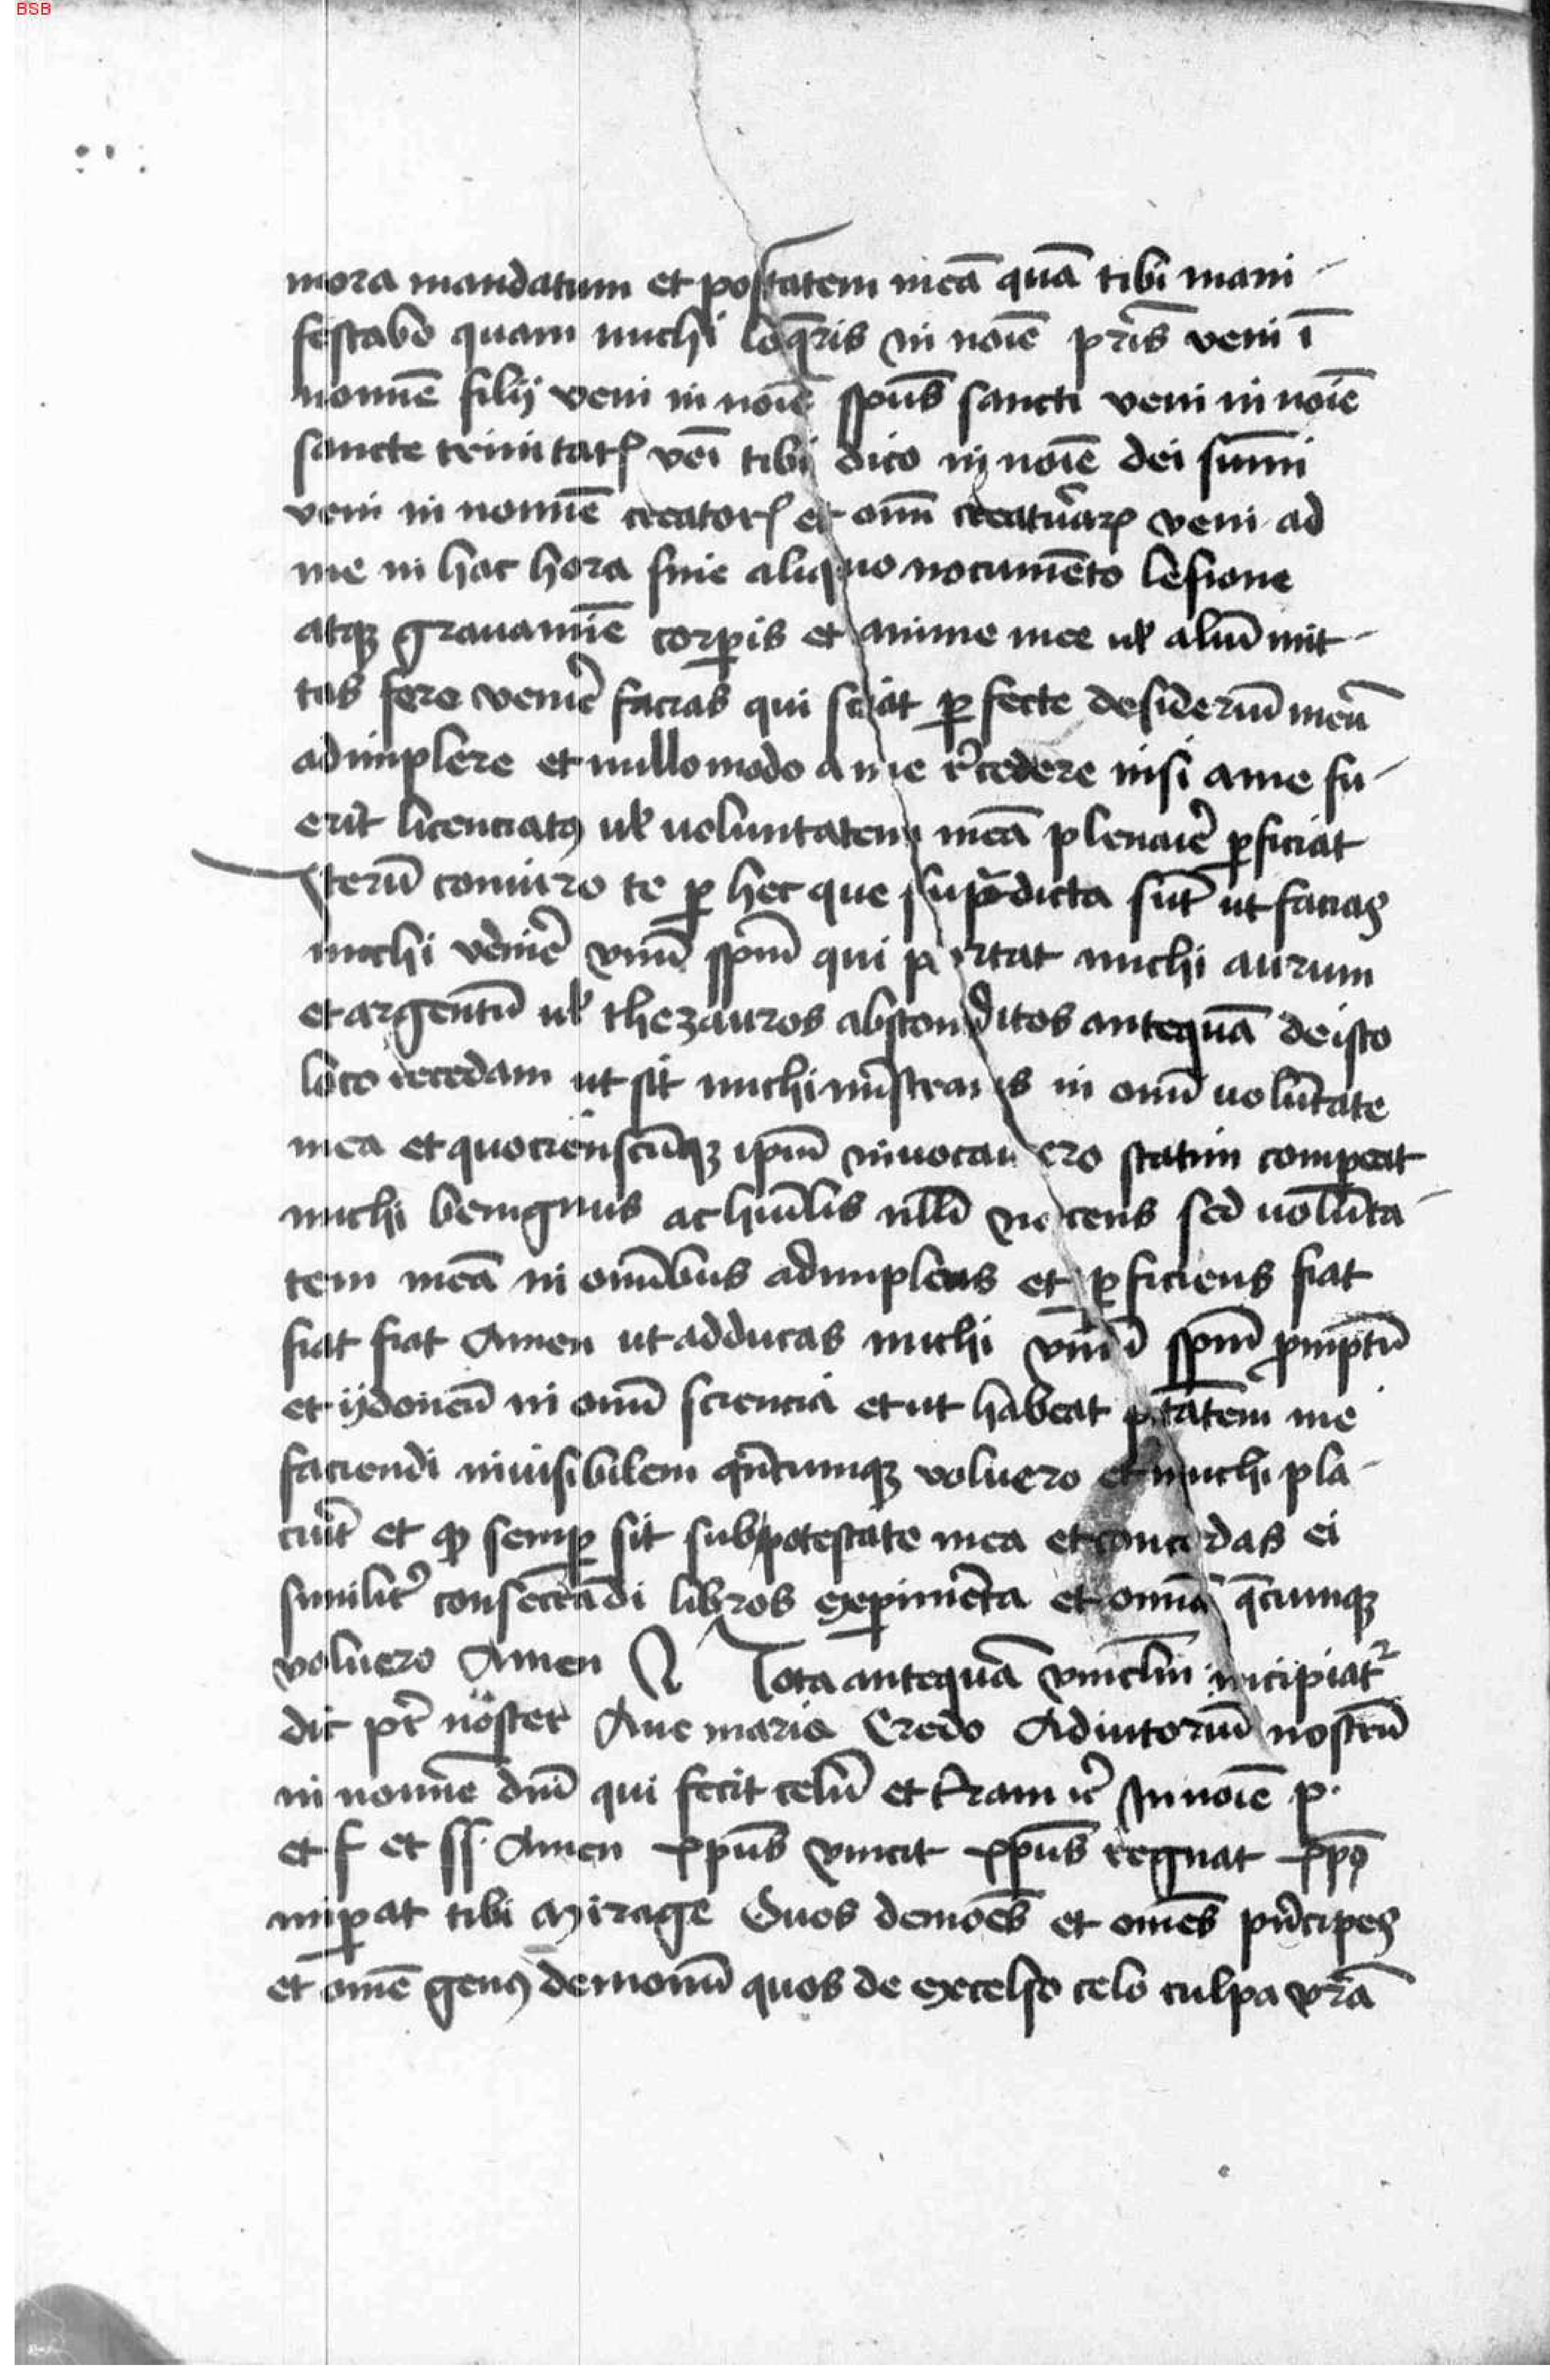 BSB
mora mandatum et postatem meā quā tibi mani-
festabo quam michi loq̄ris in noīe pr̄is veni ī
nomīe filij veni in noīe spūs sancti veni in noīe
sancte trinitatꝭ veī tibi dico in noīe dei sum̄i
veni in nomīe creatorꝭ et om̄i creatūarꝝ veni ad
me in hac hora sine aliquo nocumēto lesione
atqꝫ grauamīe corꝑis et anime mee ul̛ aliū mit-
tas fere venir̄e facias qui sciat ꝑfecte desideriū meū
adimplere et nullomodo a me r̄cedere nisi a me fu-
erit̄ licenciatꝰ ul̛ uoluntatem meā plenaīe ꝑficiat
Iterū coniuro te ꝑ hec que sup̄dicta sūt ut facias
michi venir̄e vnū spm̄ qui portat michi aurum
et argentū ul̛ thezauros absconditos antequā de isto
loco recedam ut sit michi mīstrans in om̄i uolūtate
mea et quociēscūqꝫ ipm̄ inuocauero statim compeat
michi benignus ac hūilis nlli̅ nocens sed uolūta-
tem meā in om̄ibus adimplens et ꝑficiens fiat
fiat fiat Amen ut adducas michi vnū spm̄ ꝓmptū
et ydoneū in om̄i sciencia et ut habeat ptātem me
faciendi inuisibilem qn̄cumqꝫ voluero et michi pla-
cuit̄ et qꝫ semꝑ sit sub potestate mea et concedas ei
similit̄ consecrādi libros exꝑimēta et om̄ia q̄cumqꝫ
voluero Amen Nota antequā vinclm̄ incipiatᷣ
dic pr̄ noster Aue maria Credo Adiutoriū nostrū
in nomīe dn̄i qui fecit celū et t̄ram ic̄ In noīe p.
et f et ss. Amen xp̄us vincit xp̄us regnat xp̄ꝰ
imꝑat tibi Mirage Quos demōes et om̄es pn̄cipes
et om̄e genꝰ demonū quos de excelso celo culpa vr̄a